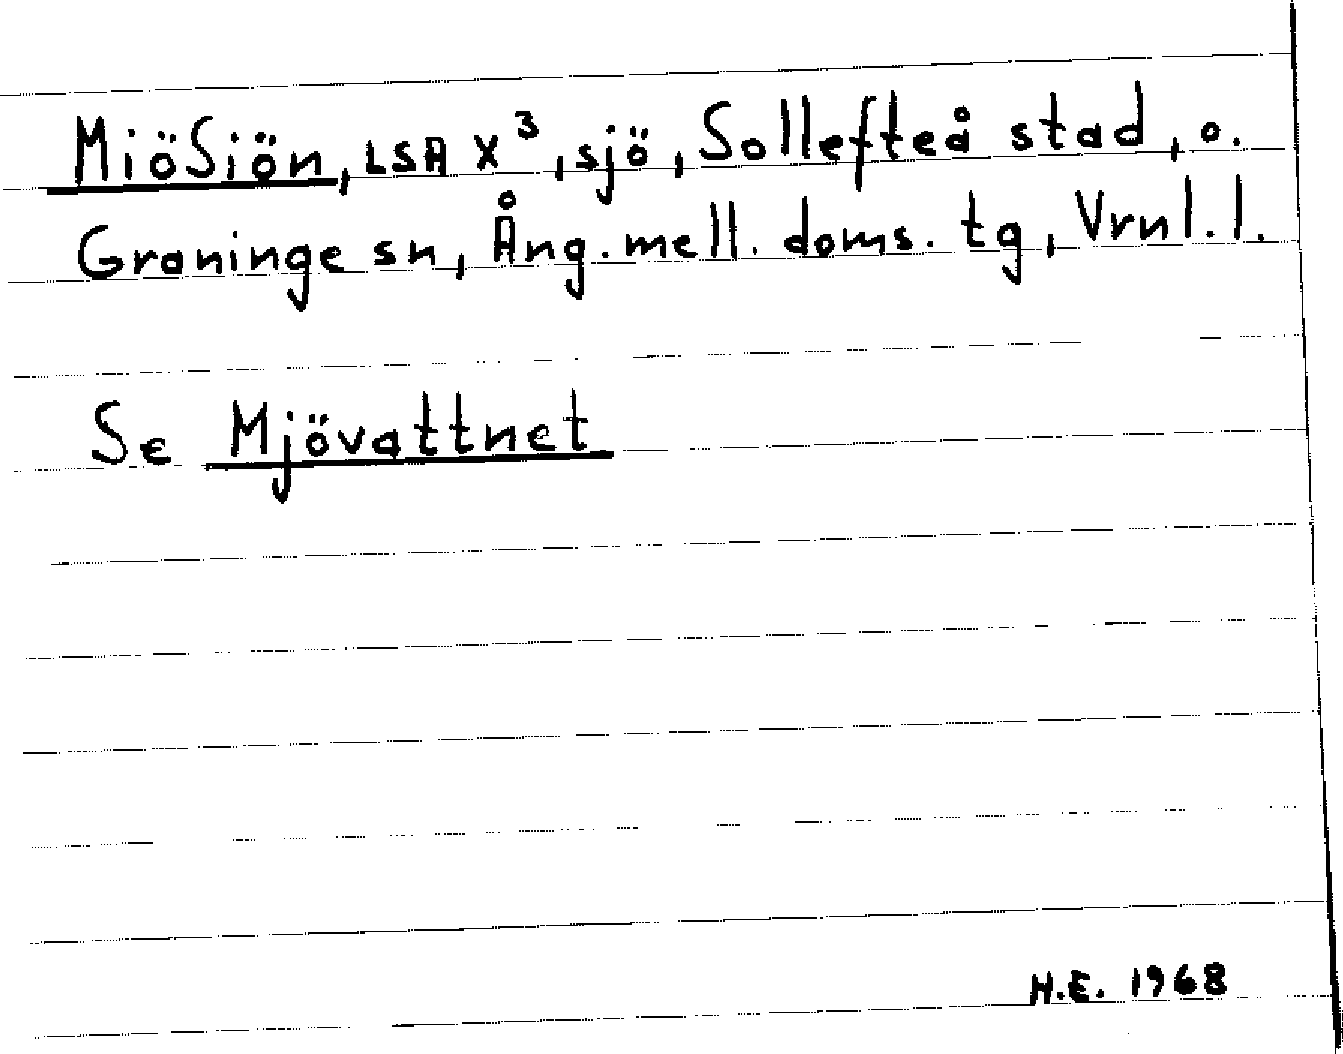 MiöSiön, LSA X³, sjö, Sollefteå stad, o.
Graninge sn, Ång. mell. doms. tg, Vrnl. l.
Se Mjövattnet
H.E. 1968